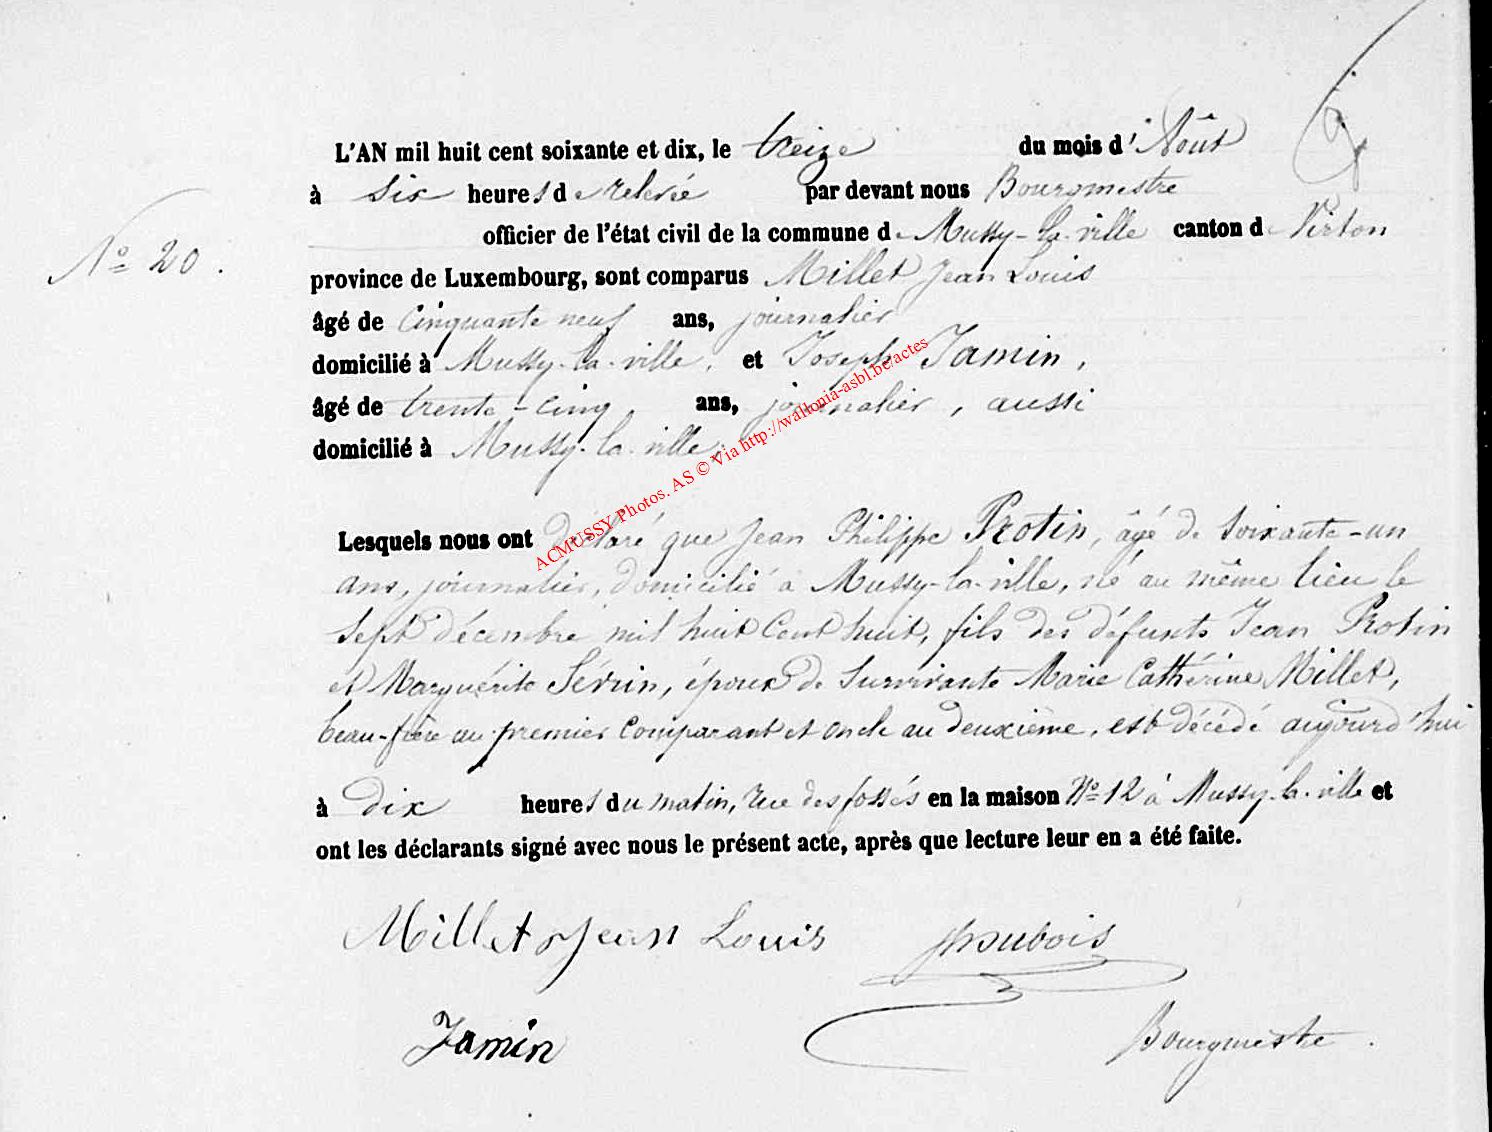 L'AN mil huit cent soixante et dix, le treize du mois d'Août
à six heures de relevée par devant nous Bourgmestre
N° 20.
officier de l'état civil de la commune de Mussy-la-ville canton de Virton
province de Luxembourg, sont comparus Millet Jean Louis
âgé de Cinquante neuf ans, journalier
domicilié à Mussy-la-ville, et Joseph Jamin,
âgé de trente-cinq, ans, journalier, aussi
domicilié à Mussy-la-ville,
ACMUSSY Photos. AS © Via http://wallonia-asbl.be/actes
Lesquels nous ont déclaré que Jean Philippe Protin, âgé de soixante-un
ans, journalier, domicilié à Mussy-la-ville, né au même lieu le
sept décembre mil huit cent huit, fils des défunts Jean Protin
et Marguérite Sévrin, époux de survivante Marie Cathérine Millet,
beau-frère au premier comparant et oncle au deuxième, est décédé aujourd'hui
à dix heures du matin, rue des fossés en la maison N° 12 à Mussy-la-ville et
ont les déclarants signé avec nous le présent acte, après que lecture leur en a été faite.
Millet Jean Louis Dubois
Jamin Bourgmestre.